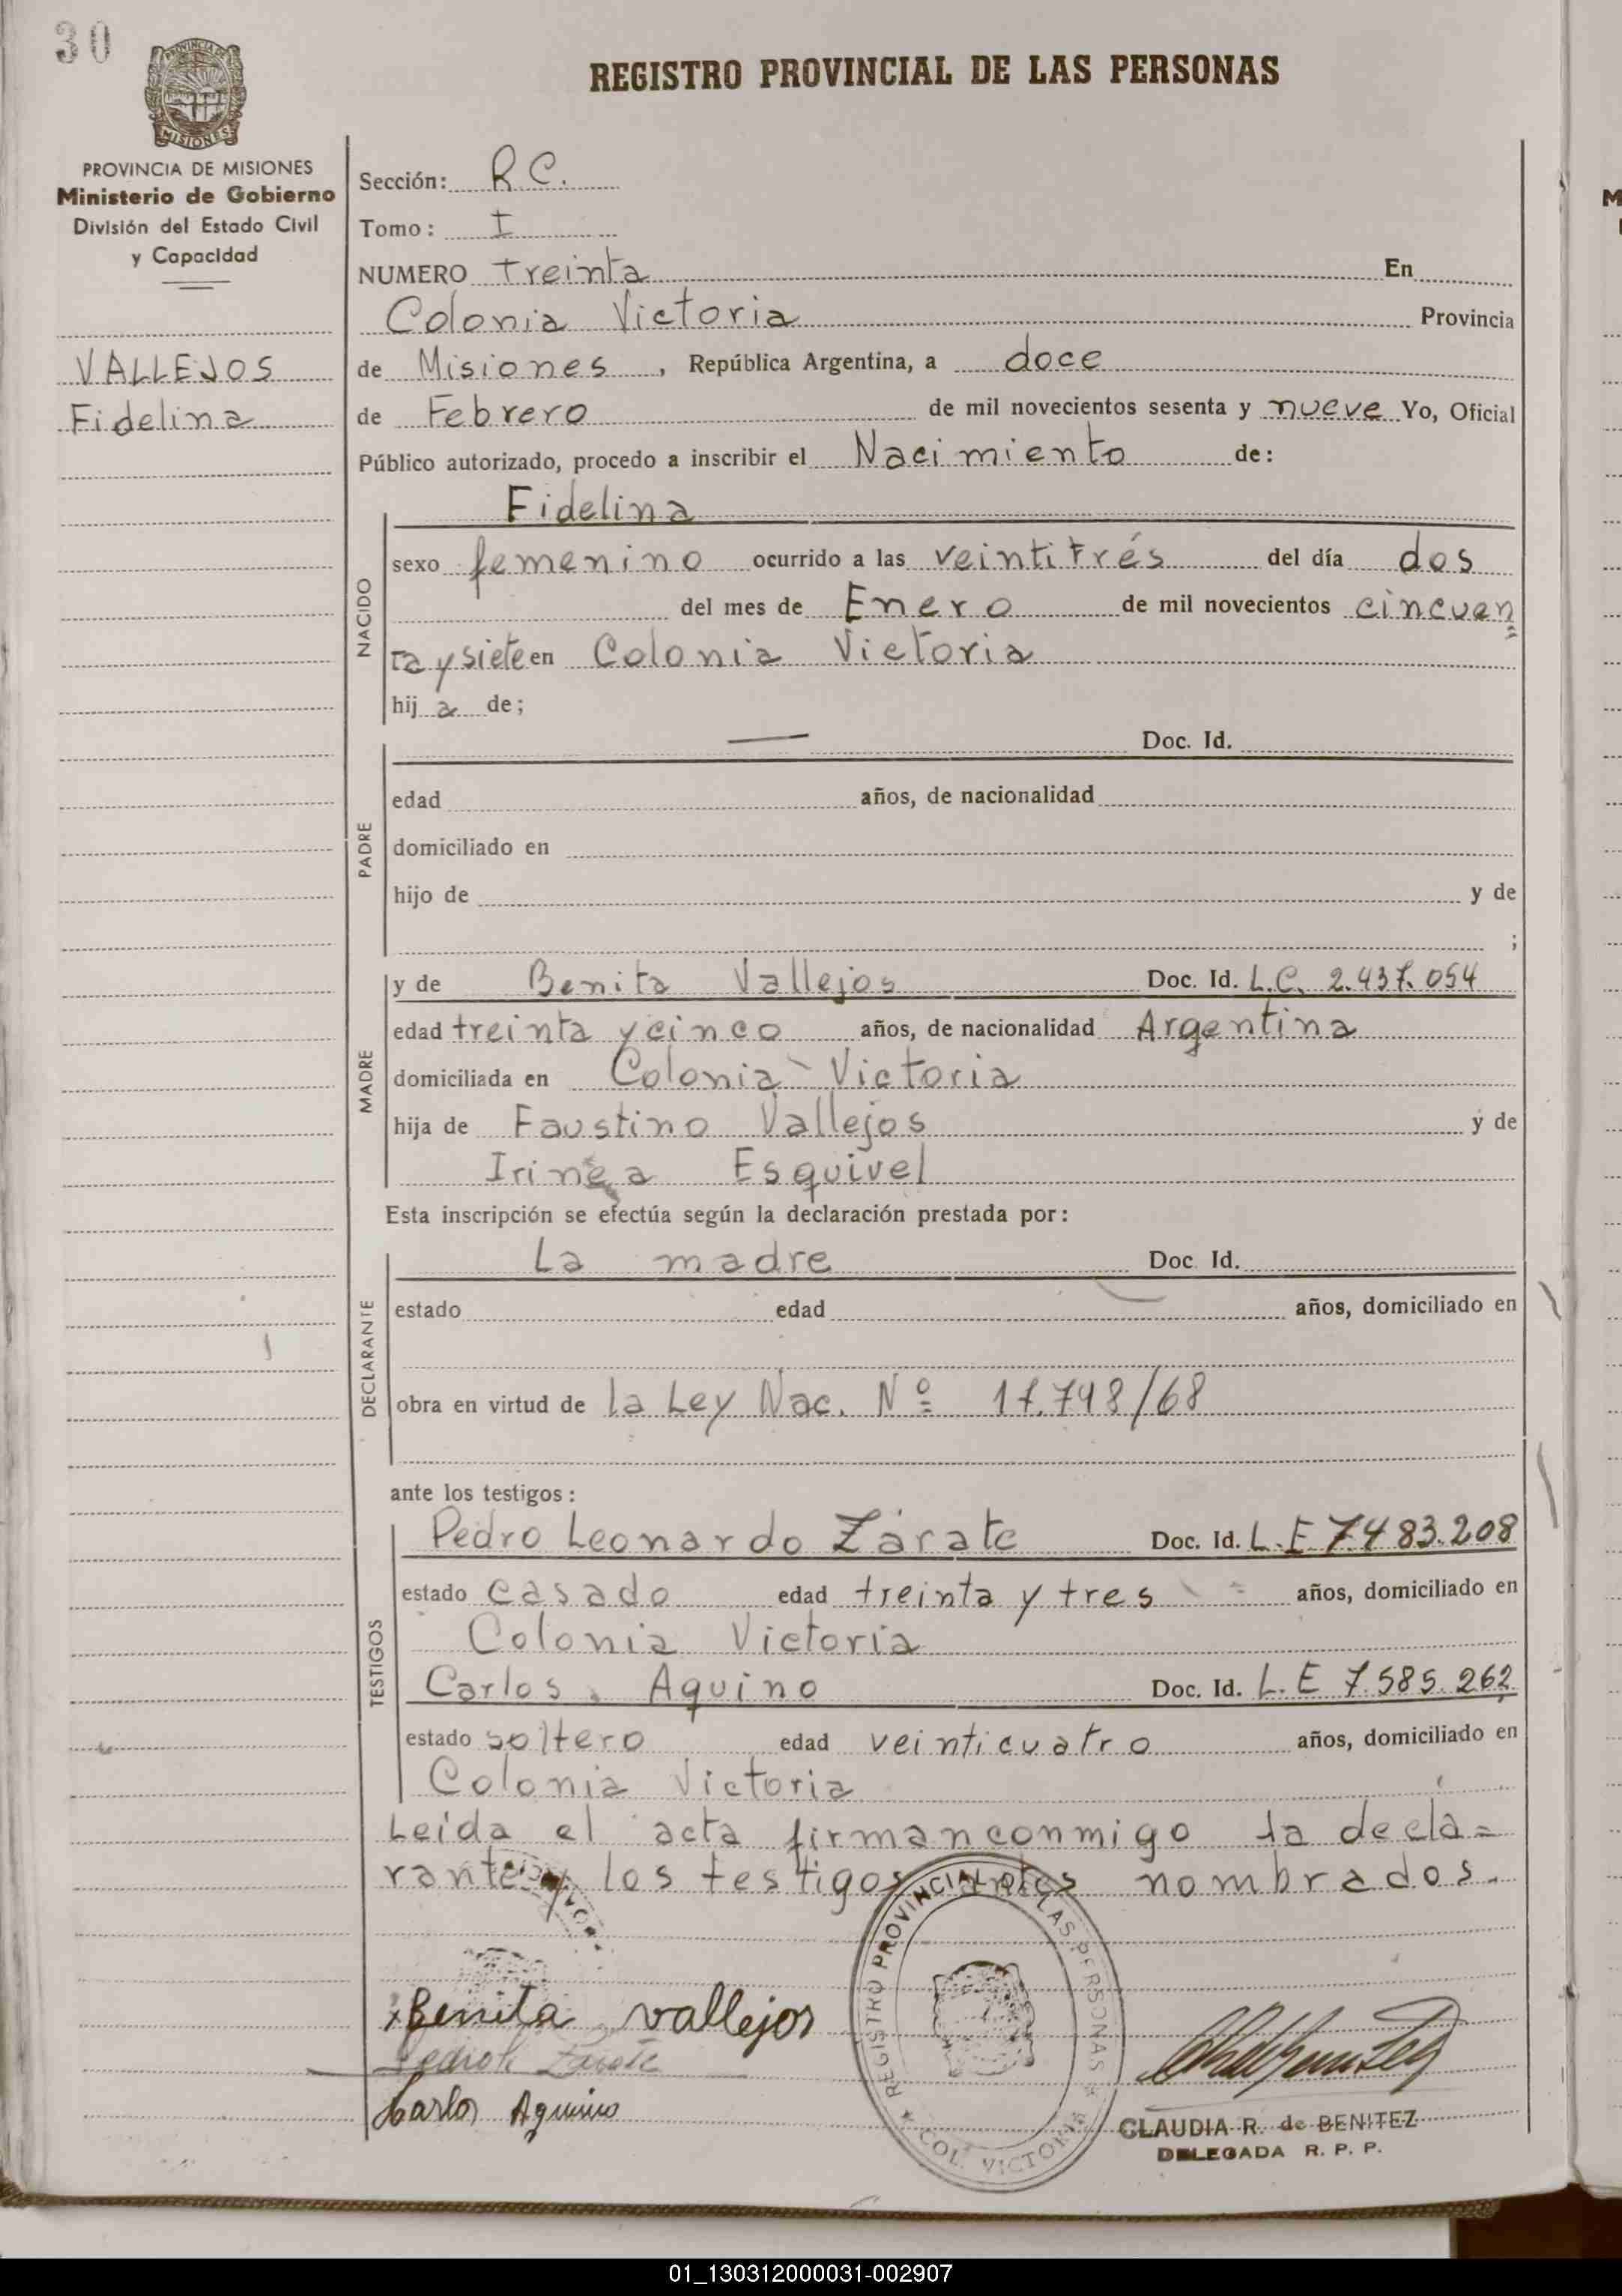 30
PROVINCIA DE
MISIONES
REGISTRO PROVINCIAL DE LAS PERSONAS
PROVINCIA DE MISIONES
Ministerio de Gobierno
División del Estado Civil
y Capacidad
VALLEJOS
Fidelina
Sección: R.C.
Tomo: I
NUMERO treinta En
Colonia Victoria Provincia
de Misiones, República Argentina, a doce
de Febrero de mil novecientos sesenta y nueve Yo, Oficial
Público autorizado, procedo a inscribir el Nacimiento de:
NACIDO
Fidelina
sexo femenino ocurrido a las veintitrés del día dos
del mes de Enero de mil novecientos cincuen=
ta y siete en Colonia Victoria
hija de;
PADRE
— Doc. Id.
edad años, de nacionalidad
domiciliado en
hijo de y de
;
MADRE
y de Benita Vallejos Doc. Id. L.C. 2.437.054
edad treinta y cinco años, de nacionalidad Argentina
domiciliada en Colonia Victoria
hija de Faustino Vallejos y de
Irinea Esquivel
Esta inscripción se efectúa según la declaración prestada por:
DECLARANTE
La madre Doc. Id.
estado edad años, domiciliado en
obra en virtud de la Ley Nac. Nº 17.798/68
ante los testigos:
TESTIGOS
Pedro Leonardo Zárate Doc. Id. L.E 7.483.208
estado casado edad treinta y tres = años, domiciliado en
Colonia Victoria
Carlos Aquino Doc. Id. L.E 7.585.262
estado soltero edad veinticuatro años, domiciliado en
Colonia Victoria
Leida el acta firman conmigo la decla=
rante y los testigos antes nombrados.
Benita vallejos
Pedro L Zarate
Carlos Aquino
REGISTRO PROVINCIAL DE LAS PERSONAS
COL. VICTORIA
CLAUDIA R. de BENITEZ
DELEGADA R. P. P.
01_130312000031-002907